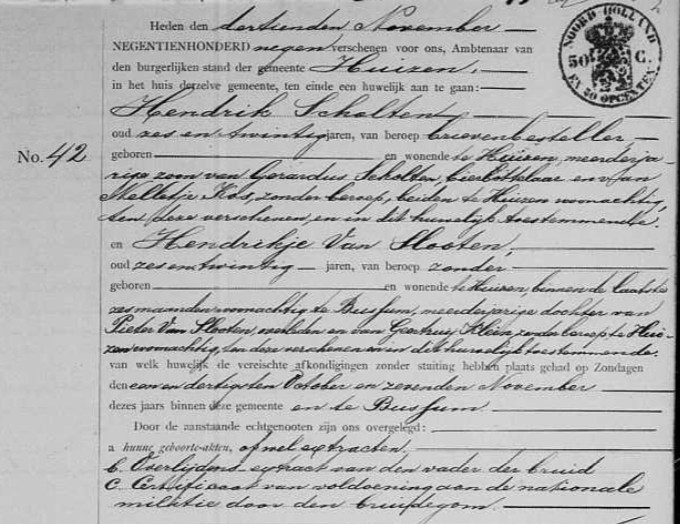 Heden den dertienden November
NEGENTIENHONDERD negen, verschenen voor ons, Ambtenaar van
den burgerlijken stand der gemeente Huizen,
in het huis derzelve gemeente, ten einde een huwelijk aan te gaan:
Hendrik Scholten
oud zes en twintig jaren, van beroep brievenbesteller
geboren en wonende te Huizen, meerderja-
No. 42
rige zoon van Gerardus Scholten, bierbottelaar en van
Melletje Kos, zonder beroep, beiden te Huizen woonachtig,
ten deze verschenen, en in dit huwelijk toestemmende.
en Hendrikje Van Slooten,
oud zes en twintig jaren, van beroep zonder
geboren en wonende te Huizen, binnen de laatste
zes maanden woonachtig te Bussum, meerderjarige dochter van
Pieter Van Slooten, overleden en van Geertrui Klein, zonder beroep te Hui-
zen woonachtig, ten deze verschenen en in dit huwelijk toestemmende.
van welk huwelijk de vereischte afkondigingen zonder stuiting hebben plaats gehad op Zondagen
den een en dertigsten October en zevenden November
dezes jaars binnen deze gemeente en te Bussum.
Door de aanstaande echtgenooten zijn ons overgelegd:
a hunne geboorte-akten, ofwel extracten.
b. Overlijdens-extract van den vader der bruid
c. Certificaat van voldoening aan de nationale
militie door den bruidegom.
NOORD HOLLAND
50 C.
EN 50 OPCENTEN